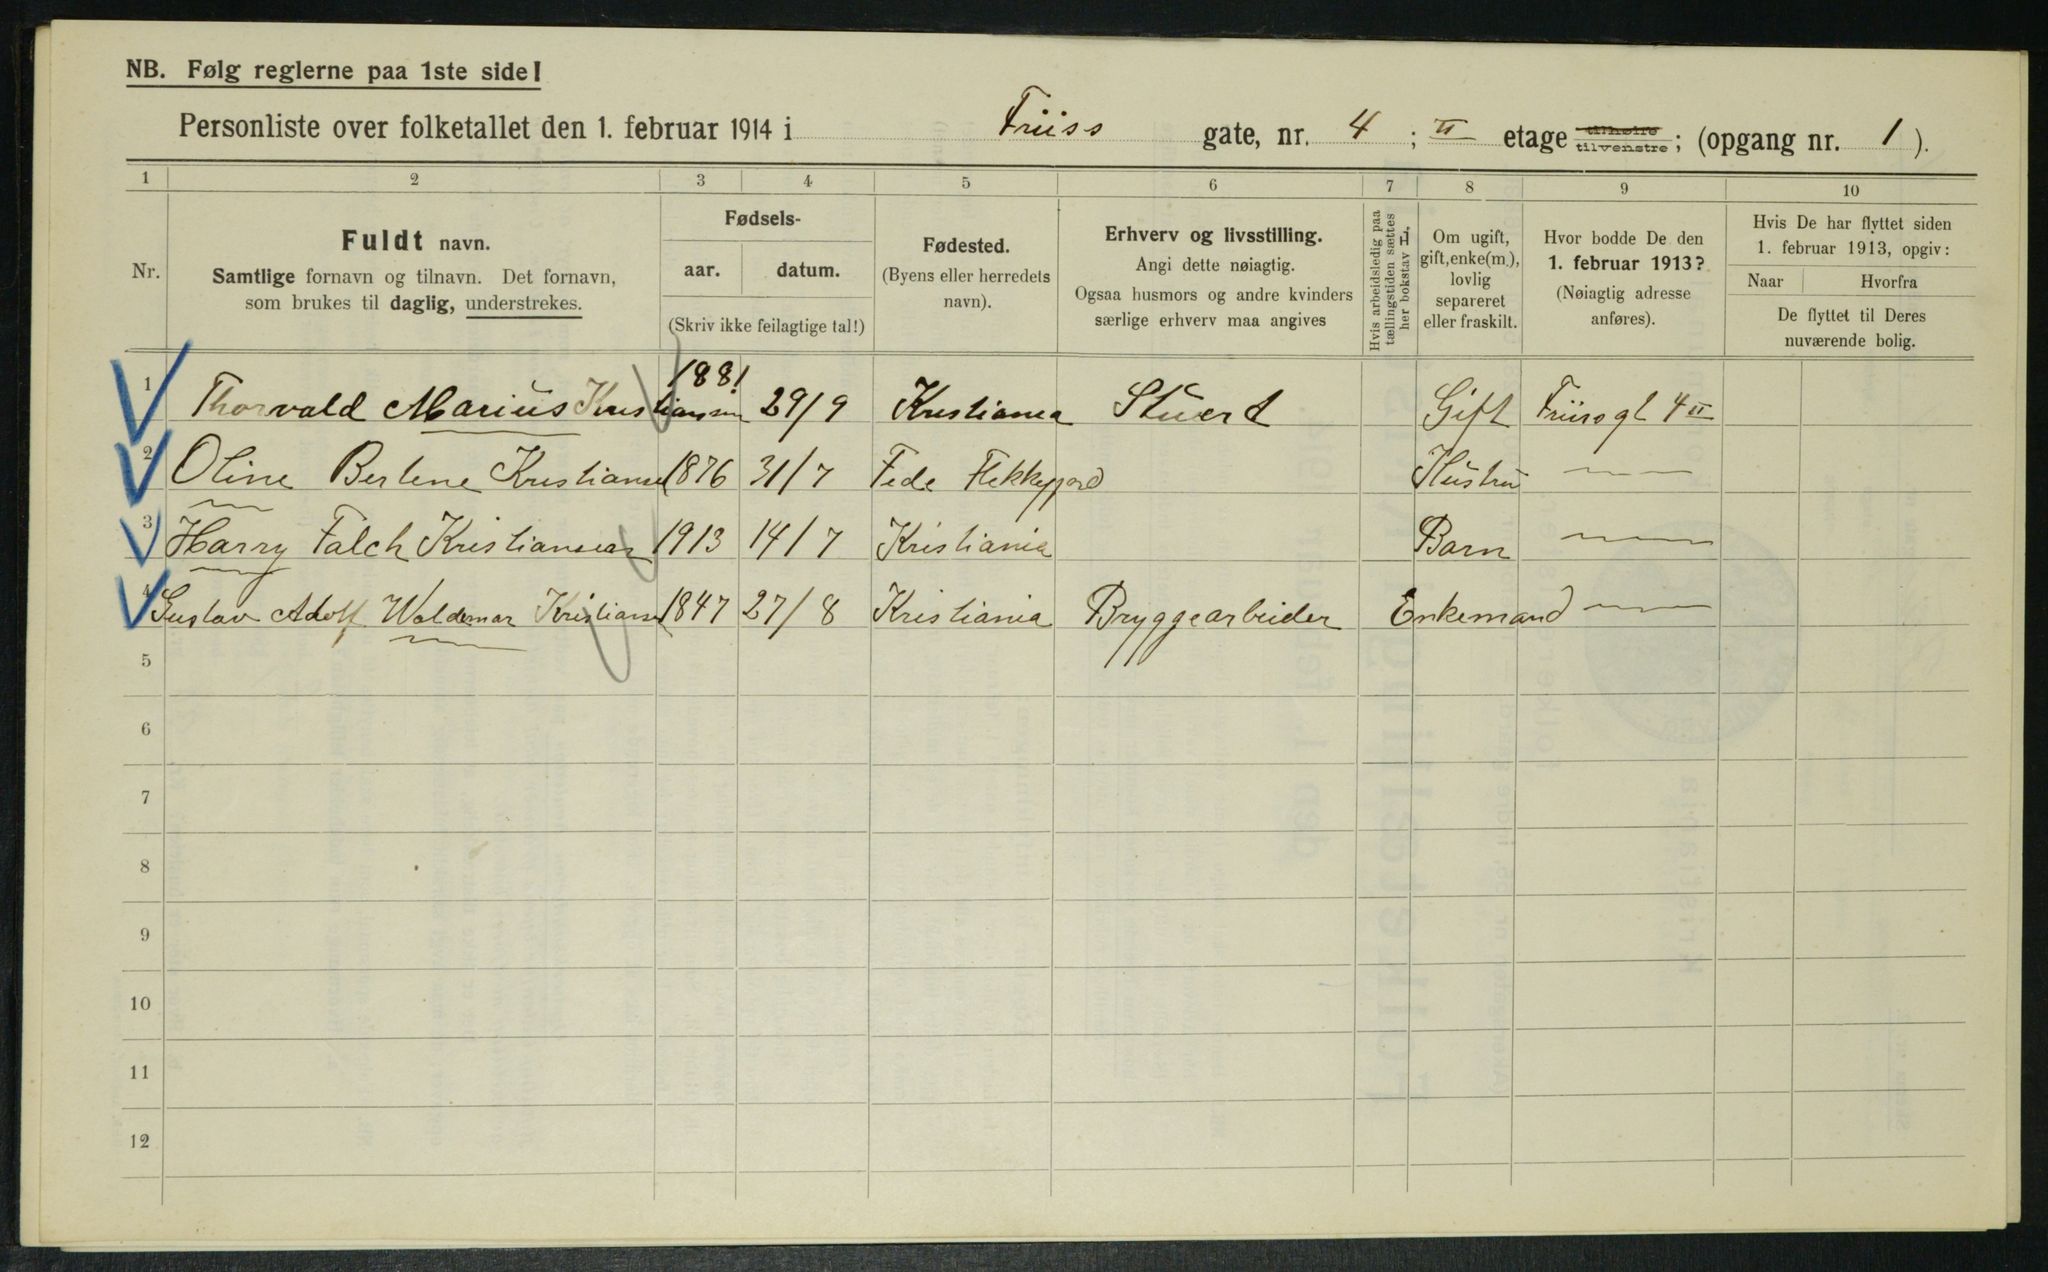 NB. Følg reglerne paa 1ste side!
Personliste over folketallet den 1. februar 1914 i Friiss gate, nr. 4; II etage tilhøire tilvenstre; (opgang nr. 1).
1 2 3 4 5 6 7 8 9 10
Nr.
Fuldt navn.
Samtlige fornavn og tilnavn. Det fornavn,
som brukes til daglig, understrekes.
Fødsels-
aar. datum.
(Skriv ikke feilagtige tal!)
Fødested.
(Byens eller herredets
navn).
Erhverv og livsstilling.
Angi dette nøiagtig.
Ogsaa husmors og andre kvinders
særlige erhverv maa angives
Hvis arbeidsledig paa
tællingstiden sættes
her bokstav L.
Om ugift,
gift, enke(m.),
lovlig
separeret
eller fraskilt.
Hvor bodde De den
1. februar 1913?
(Nøiagtig adresse
anføres).
Hvis De har flyttet siden
1. februar 1913, opgiv:
Naar Hvorfra
De flyttet til Deres
nuværende bolig.
1 Thorvald Marius Kristiansen 1881 29/9 Kristiania Stuert Gift Friisgt 4 II
2 Oline Berlene Kristiansen 1876 31/7 Fede Flekkefjord Hustru —〃—
3 Harry Falch Kristiansen 1913 14/7 Kristiania Barn —〃—
4 Gustav Adolf Waldemar Kristiansen 1847 27/8 Kristiania Bryggearbeider Enkemand —〃—
5
6
7
8
9
10
11
12